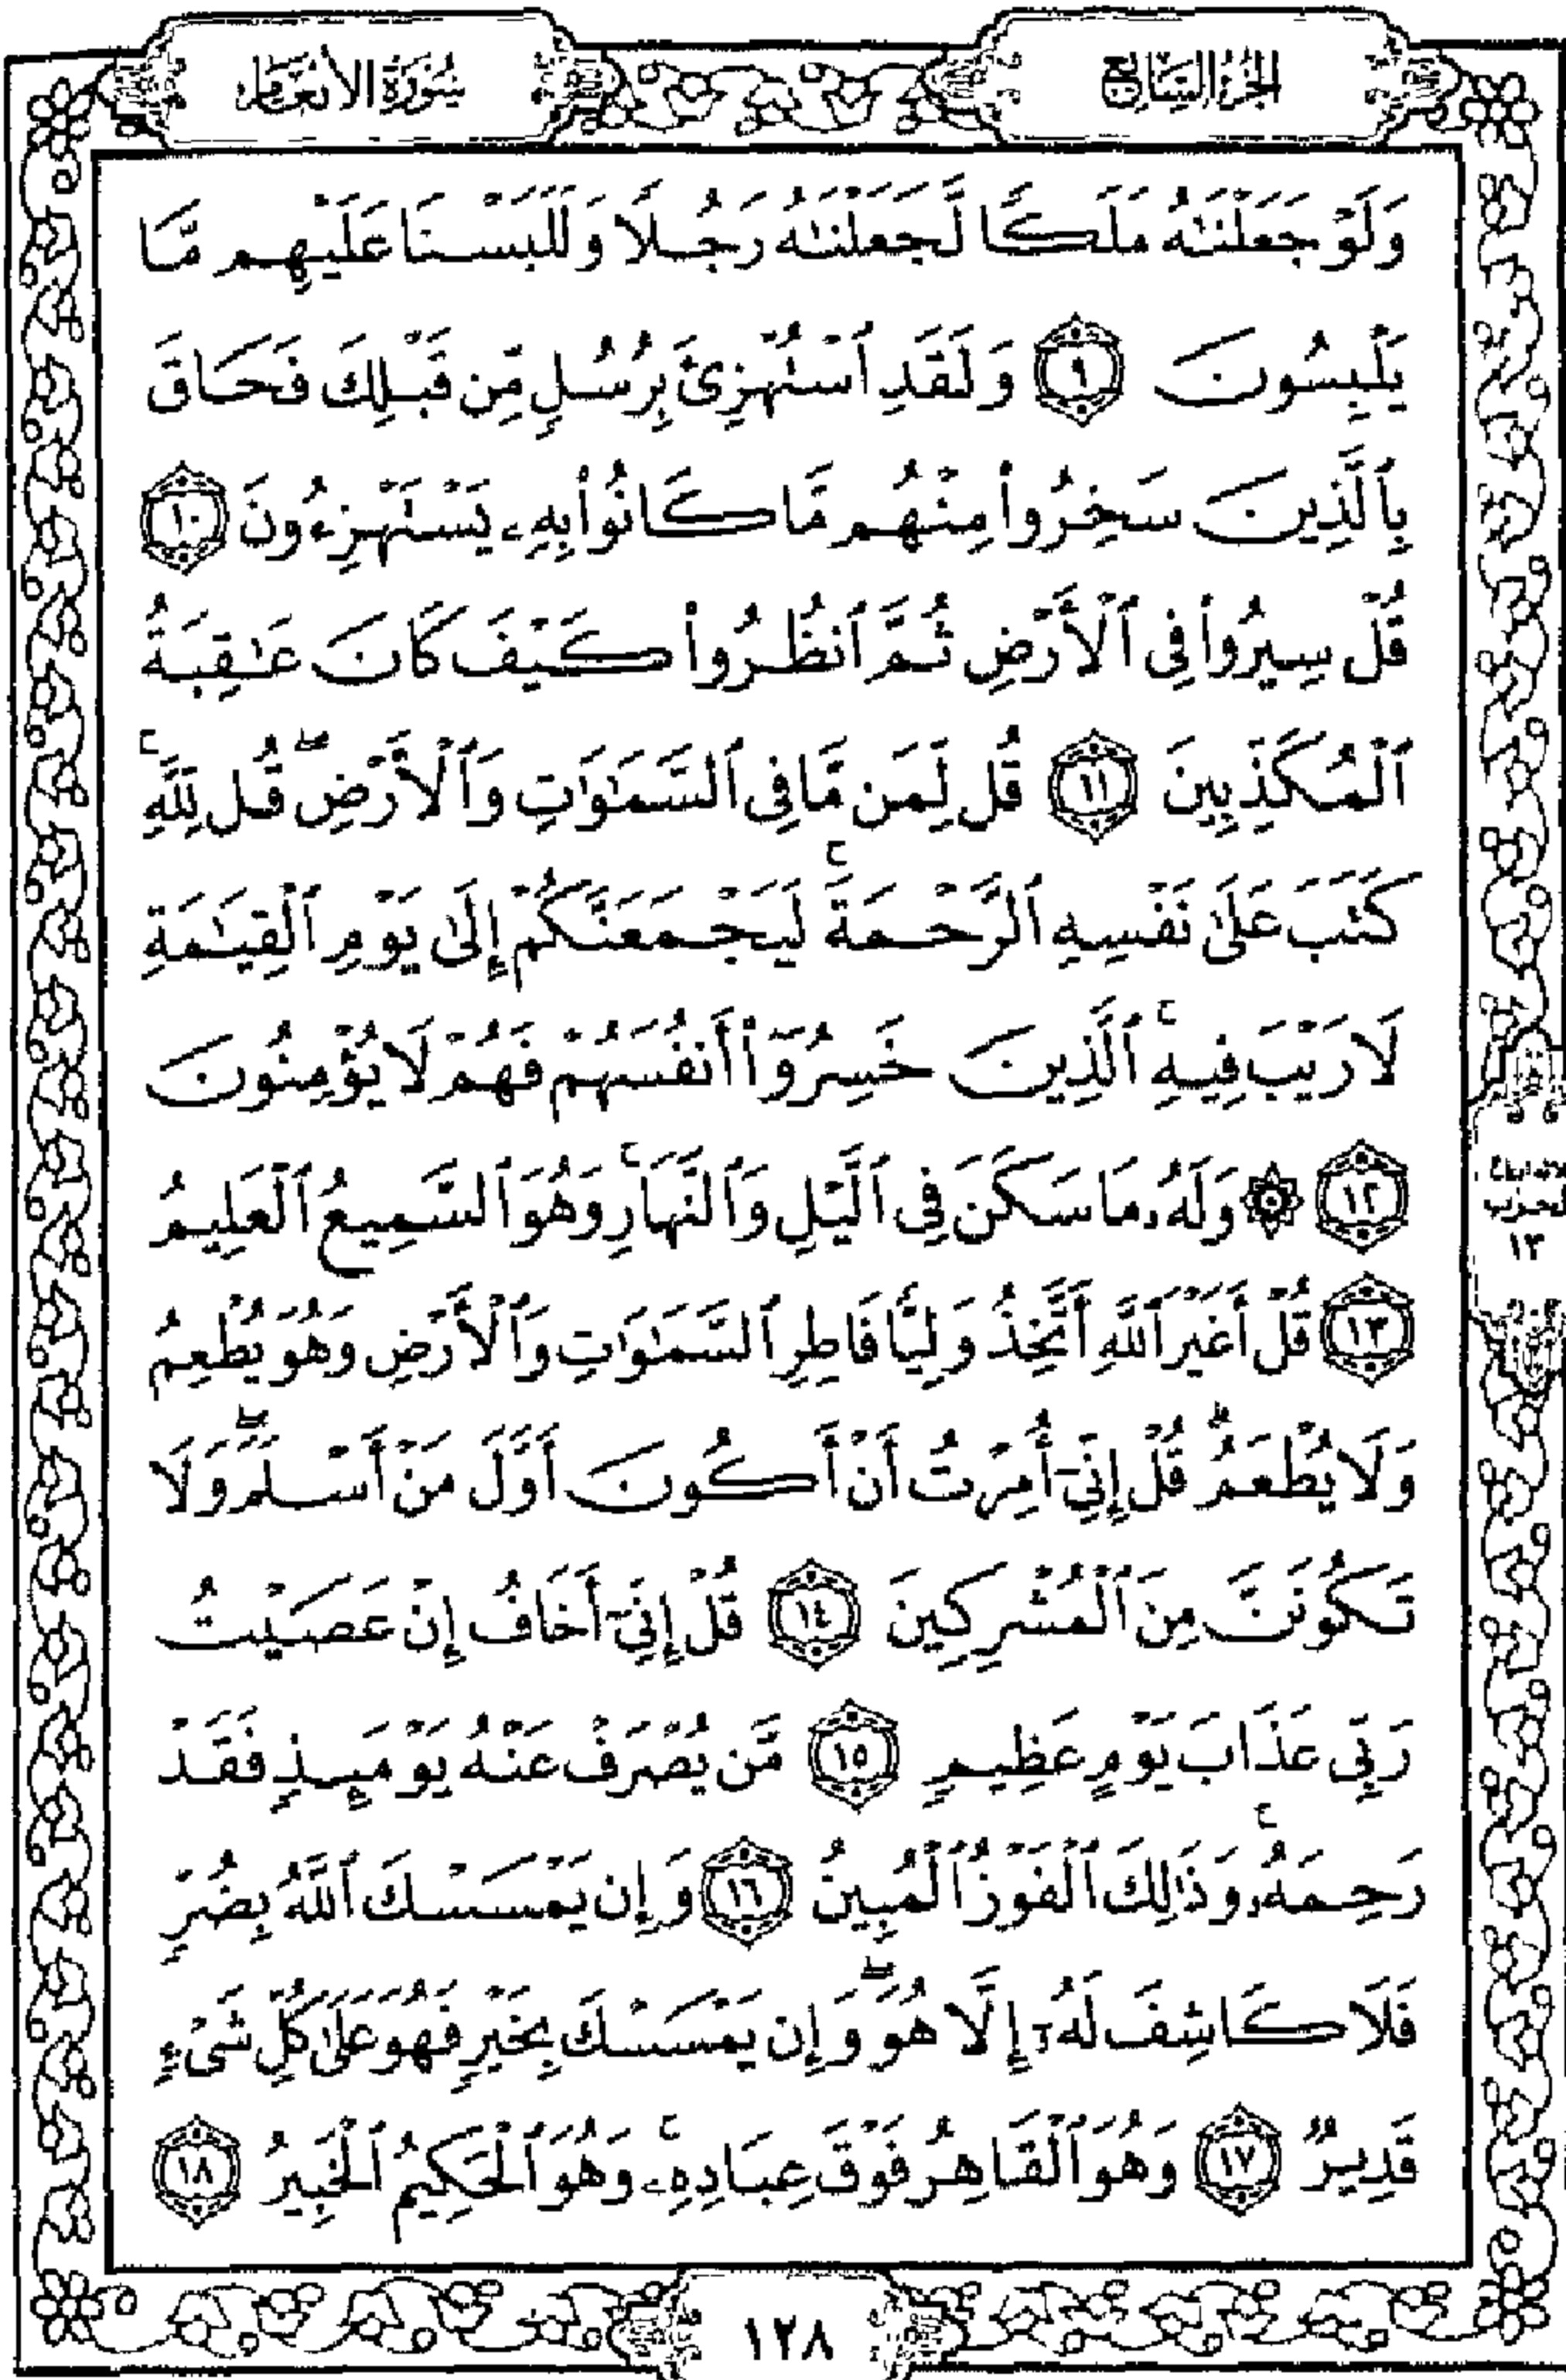 الجزء السابع
سورة الأنعام
وَلَوْ جَعَلْنَٰهُ مَلَكًا لَّجَعَلْنَٰهُ رَجُلًا وَلَلَبَسْنَا عَلَيْهِم مَّا
يَلْبِسُونَ ٩ وَلَقَدِ ٱسْتُهْزِئَ بِرُسُلٍ مِّن قَبْلِكَ فَحَاقَ
بِٱلَّذِينَ سَخِرُوا۟ مِنْهُم مَّا كَانُوا۟ بِهِۦ يَسْتَهْزِءُونَ ١٠
قُلْ سِيرُوا۟ فِى ٱلْأَرْضِ ثُمَّ ٱنظُرُوا۟ كَيْفَ كَانَ عَٰقِبَةُ
ٱلْمُكَذِّبِينَ ١١ قُل لِّمَن مَّا فِى ٱلسَّمَٰوَٰتِ وَٱلْأَرْضِ ۖ قُل لِّلَّهِ ۚ
كَتَبَ عَلَىٰ نَفْسِهِ ٱلرَّحْمَةَ ۚ لَيَجْمَعَنَّكُمْ إِلَىٰ يَوْمِ ٱلْقِيَٰمَةِ
لَا رَيْبَ فِيهِ ۚ ٱلَّذِينَ خَسِرُوٓا۟ أَنفُسَهُمْ فَهُمْ لَا يُؤْمِنُونَ
١٢ ۞ وَلَهُۥ مَا سَكَنَ فِى ٱلَّيْلِ وَٱلنَّهَارِ ۚ وَهُوَ ٱلسَّمِيعُ ٱلْعَلِيمُ
١٣ قُلْ أَغَيْرَ ٱللَّهِ أَتَّخِذُ وَلِيًّا فَاطِرِ ٱلسَّمَٰوَٰتِ وَٱلْأَرْضِ وَهُوَ يُطْعِمُ
وَلَا يُطْعَمُ ۗ قُلْ إِنِّىٓ أُمِرْتُ أَنْ أَكُونَ أَوَّلَ مَنْ أَسْلَمَ ۖ وَلَا
تَكُونَنَّ مِنَ ٱلْمُشْرِكِينَ ١٤ قُلْ إِنِّىٓ أَخَافُ إِنْ عَصَيْتُ
رَبِّى عَذَابَ يَوْمٍ عَظِيمٍ ١٥ مَّن يُصْرَفْ عَنْهُ يَوْمَئِذٍ فَقَدْ
رَحِمَهُۥ ۚ وَذَٰلِكَ ٱلْفَوْزُ ٱلْمُبِينُ ١٦ وَإِن يَمْسَسْكَ ٱللَّهُ بِضُرٍّ
فَلَا كَاشِفَ لَهُۥٓ إِلَّا هُوَ ۖ وَإِن يَمْسَسْكَ بِخَيْرٍ فَهُوَ عَلَىٰ كُلِّ شَىْءٍ
قَدِيرٌ ١٧ وَهُوَ ٱلْقَاهِرُ فَوْقَ عِبَادِهِۦ ۚ وَهُوَ ٱلْحَكِيمُ ٱلْخَبِيرُ ١٨
الحزب
١٣
١٢٨